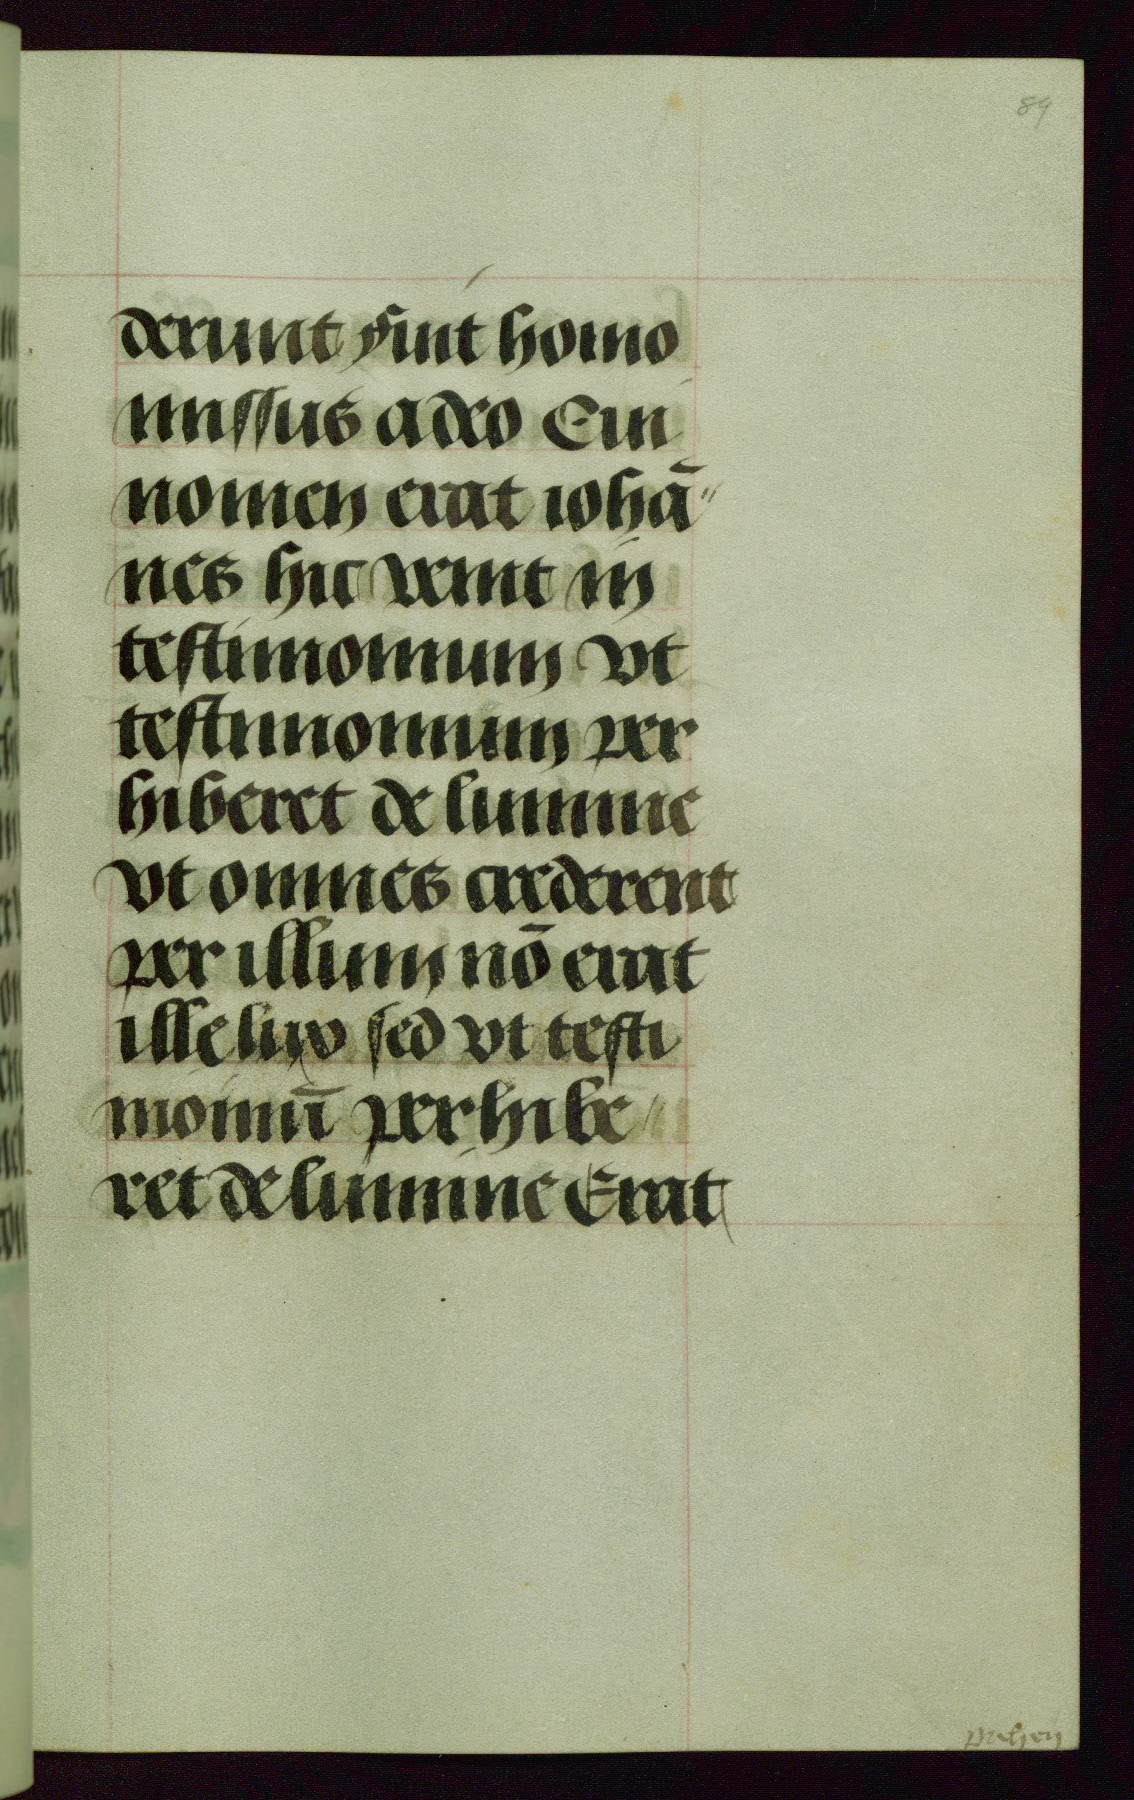 89
derunt ffuit homo
missus a deo Cui
nomen erat iohā"
nes hic venit in
testimonium vt
testimonium per
hiberet de lumine
vt omnes crederent
per illum nō erat
ille lux sed vt testi
moniū perhibe"
ret de lumine Erat